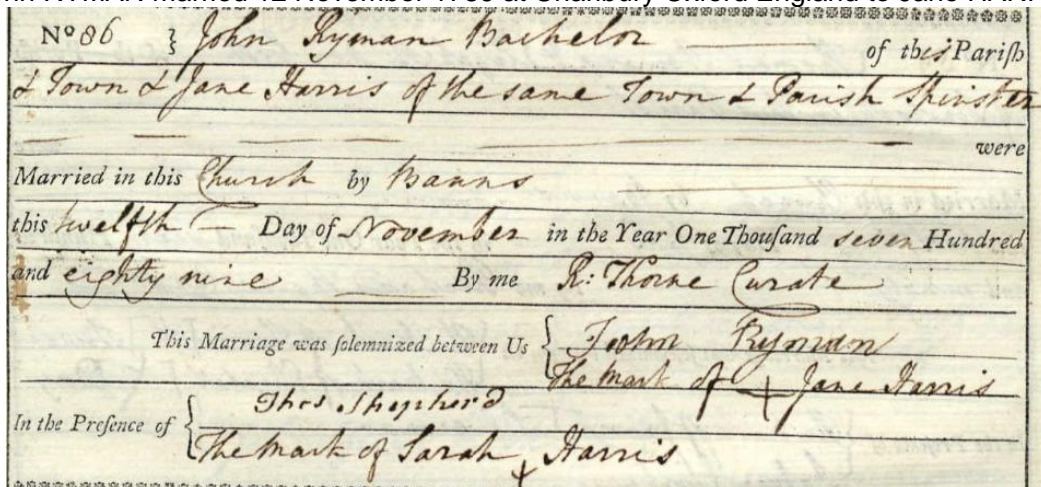 married 12 November 1789 at Charlbury Oxford England to Jane
Nº 86 John Ryman Bachelor of this Pariſh
& Town & Jane Harris of the same Town & Parish Spinster
were
Married in this Church by Banns
this twelfth Day of November in the Year One Thouſand seven Hundred
and eighty nine By me R: Thorne Curate
This Marriage was ſolemnized between Us { John Ryman
The Mark of + Jane Harris
In the Preſence of { Thos Shepherd
The Mark of Sarah + Harris